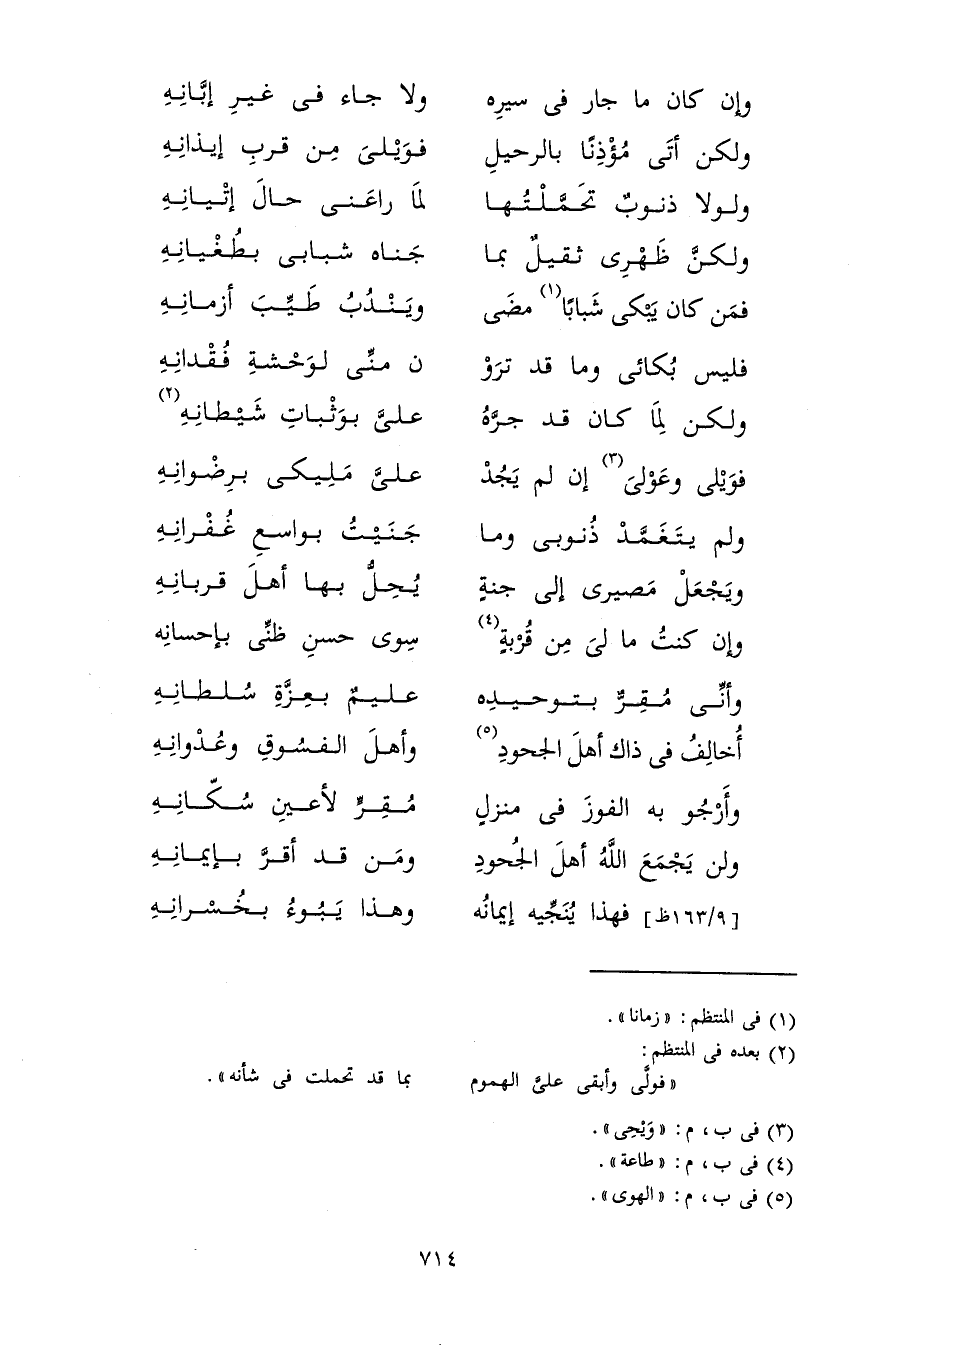 وإن كان ما جار فى سيرِه ولا جاء فى غيرِ إبَّانِهِ
ولكن أتَى مُؤْذِنًا بالرحيلِ فوَيْلىَ مِن قربِ إيذانِهِ
ولولا ذنوبٌ تحَمَّلْتُها لمَا راعَنى حالَ إتْيانِهِ
ولكنَّ ظَهْرِى ثقيلٌ بما جَناه شبابى بطُغْيانِهِ
فمَن كان يَبْكى شَبابًا(١) مضَى ويَنْدُبُ طَيِّبَ أزمانِهِ
فليس بُكائى وما قد ترَوْ ن منِّى لوَحْشةِ فُقْدانِهِ
ولكن لمَا كان قد جرَّهُ علىَّ بوَثْباتِ شَيْطانِهِ(٢)
فوَيْلى وعَوْلىَ(٣) إن لم يَجُدْ علىَّ مَلِيكى برِضْوانِهِ
ولم يتَغَمَّدْ ذُنوبى وما جَنَيْتُ بواسعِ غُفْرانِهِ
ويَجْعَلْ مَصيرى إلى جنةٍ يُحِلُّ بها أهلَ قربانِهِ
وإن كنتُ ما لىَ مِن قُرْبةٍ(٤) سِوى حسنِ ظنِّى بإحسانِه
وأنِّى مُقِرٌّ بتوحيدِه عليمٌ بعِزَّةِ سُلطانِهِ
أُخالِفُ فى ذاك أهلَ الجحودِ(٥) وأهلَ الفسُوقِ وعُدْوانِهِ
وأَرْجُو به الفوزَ فى منزلٍ مُقِرٍّ لأعينِ سُكّانِهِ
ولن يَجْمَعَ اللَّهُ أهلَ الجُحودِ ومَن قد أقرَّ بإيمانِهِ
[١٦٣/٩ظ] فهذا يُنَجِّيه إيمانُه وهذا يَبُوءُ بخُسْرانِهِ
(١) فى المنتظم: «زمانا».
(٢) بعده فى المنتظم:
«فولَّى وأبقى علىَّ الهموم بما قد تحملت فى شأنه».
(٣) فى ب، م: «وَيْحِى».
(٤) فى ب، م: «طاعة».
(٥) فى ب، م: «الهوى».
٧١٤